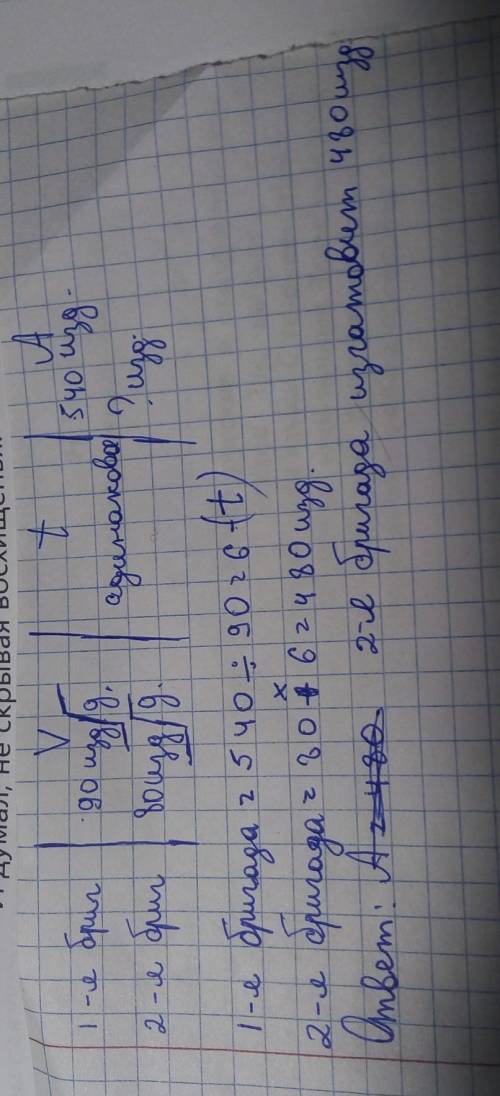 И думал, не скрывая восхищень
V t A
1-я бриг | 90 изд/д. | одинаковое | 540 изд.
2-я бриг | 80 изд/д. | | ? изд.
1-я бригада = 540 ÷ 90 = 6 (t)
2-я бригада = 80 × 6 = 480 изд.
Ответ: А = 480 2-я бригада изгатовит 480 изд.